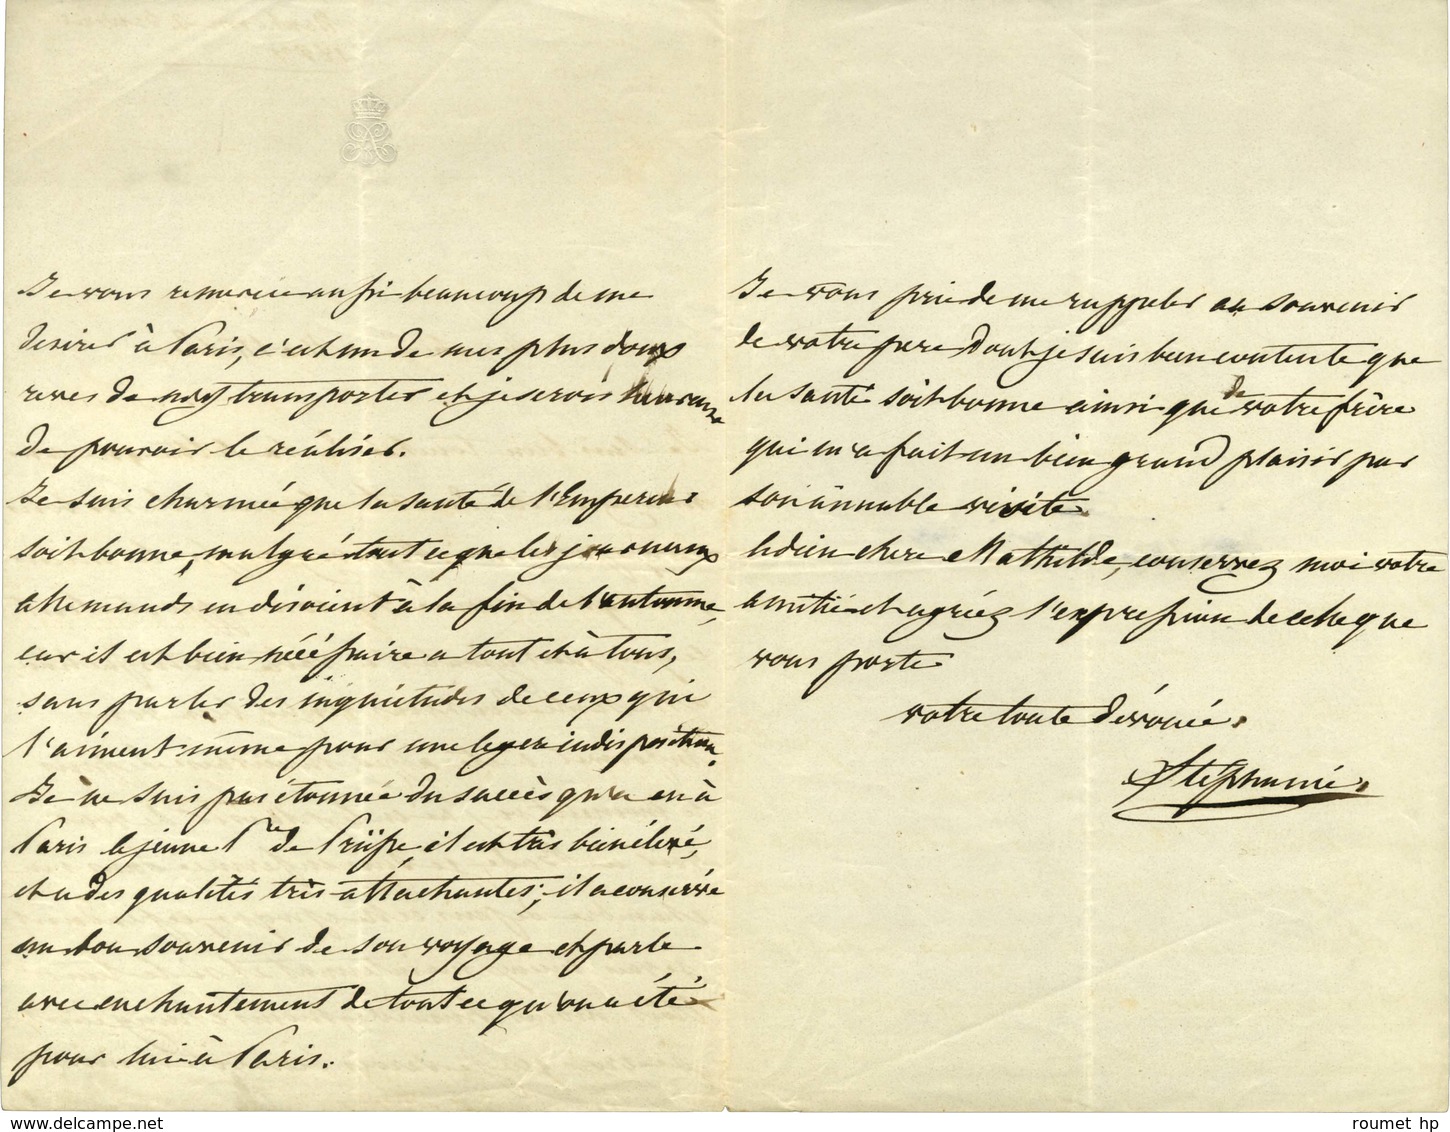 Je vous remercie aussi beaucoup de me
desirer à Paris, c'est un de mes plus doux
reves de m'y transporter et je serois heureuse
de pouvoir le réaliser.
Je suis charmée que la santé de l'Empereur
soit bonne, malgré tout ce que les journaux
allemands en disoient à la fin de l'automne,
car il est bien nécéssaire a tout et à tous,
sans parler des inquiétudes de ceux qui
l'aiment même pour une legere indisposition.
Je ne suis pas étonnée du succès qu'a eu à
Paris le jeune P^ce de Prusse, il est très bien élevé,
et a des qualités très attachantes; il a conservé
un bon souvenir de son voyage et parle
avec enchantement de tout ce qu'on a été
pour lui à Paris.
Je vous prie de me rappeler au souvenir
de votre pere dont je suis bien contente que
la santé soit bonne ainsi que de votre frère
qui m'a fait un bien grand plaisir par
son aimable visite.
Adieu chere Mathilde, conservez moi votre
amitié et agréez l'expression de celle que
vous porte
votre toute dévouée.
Stéphanie.
www.delcampe.net
roumet hp